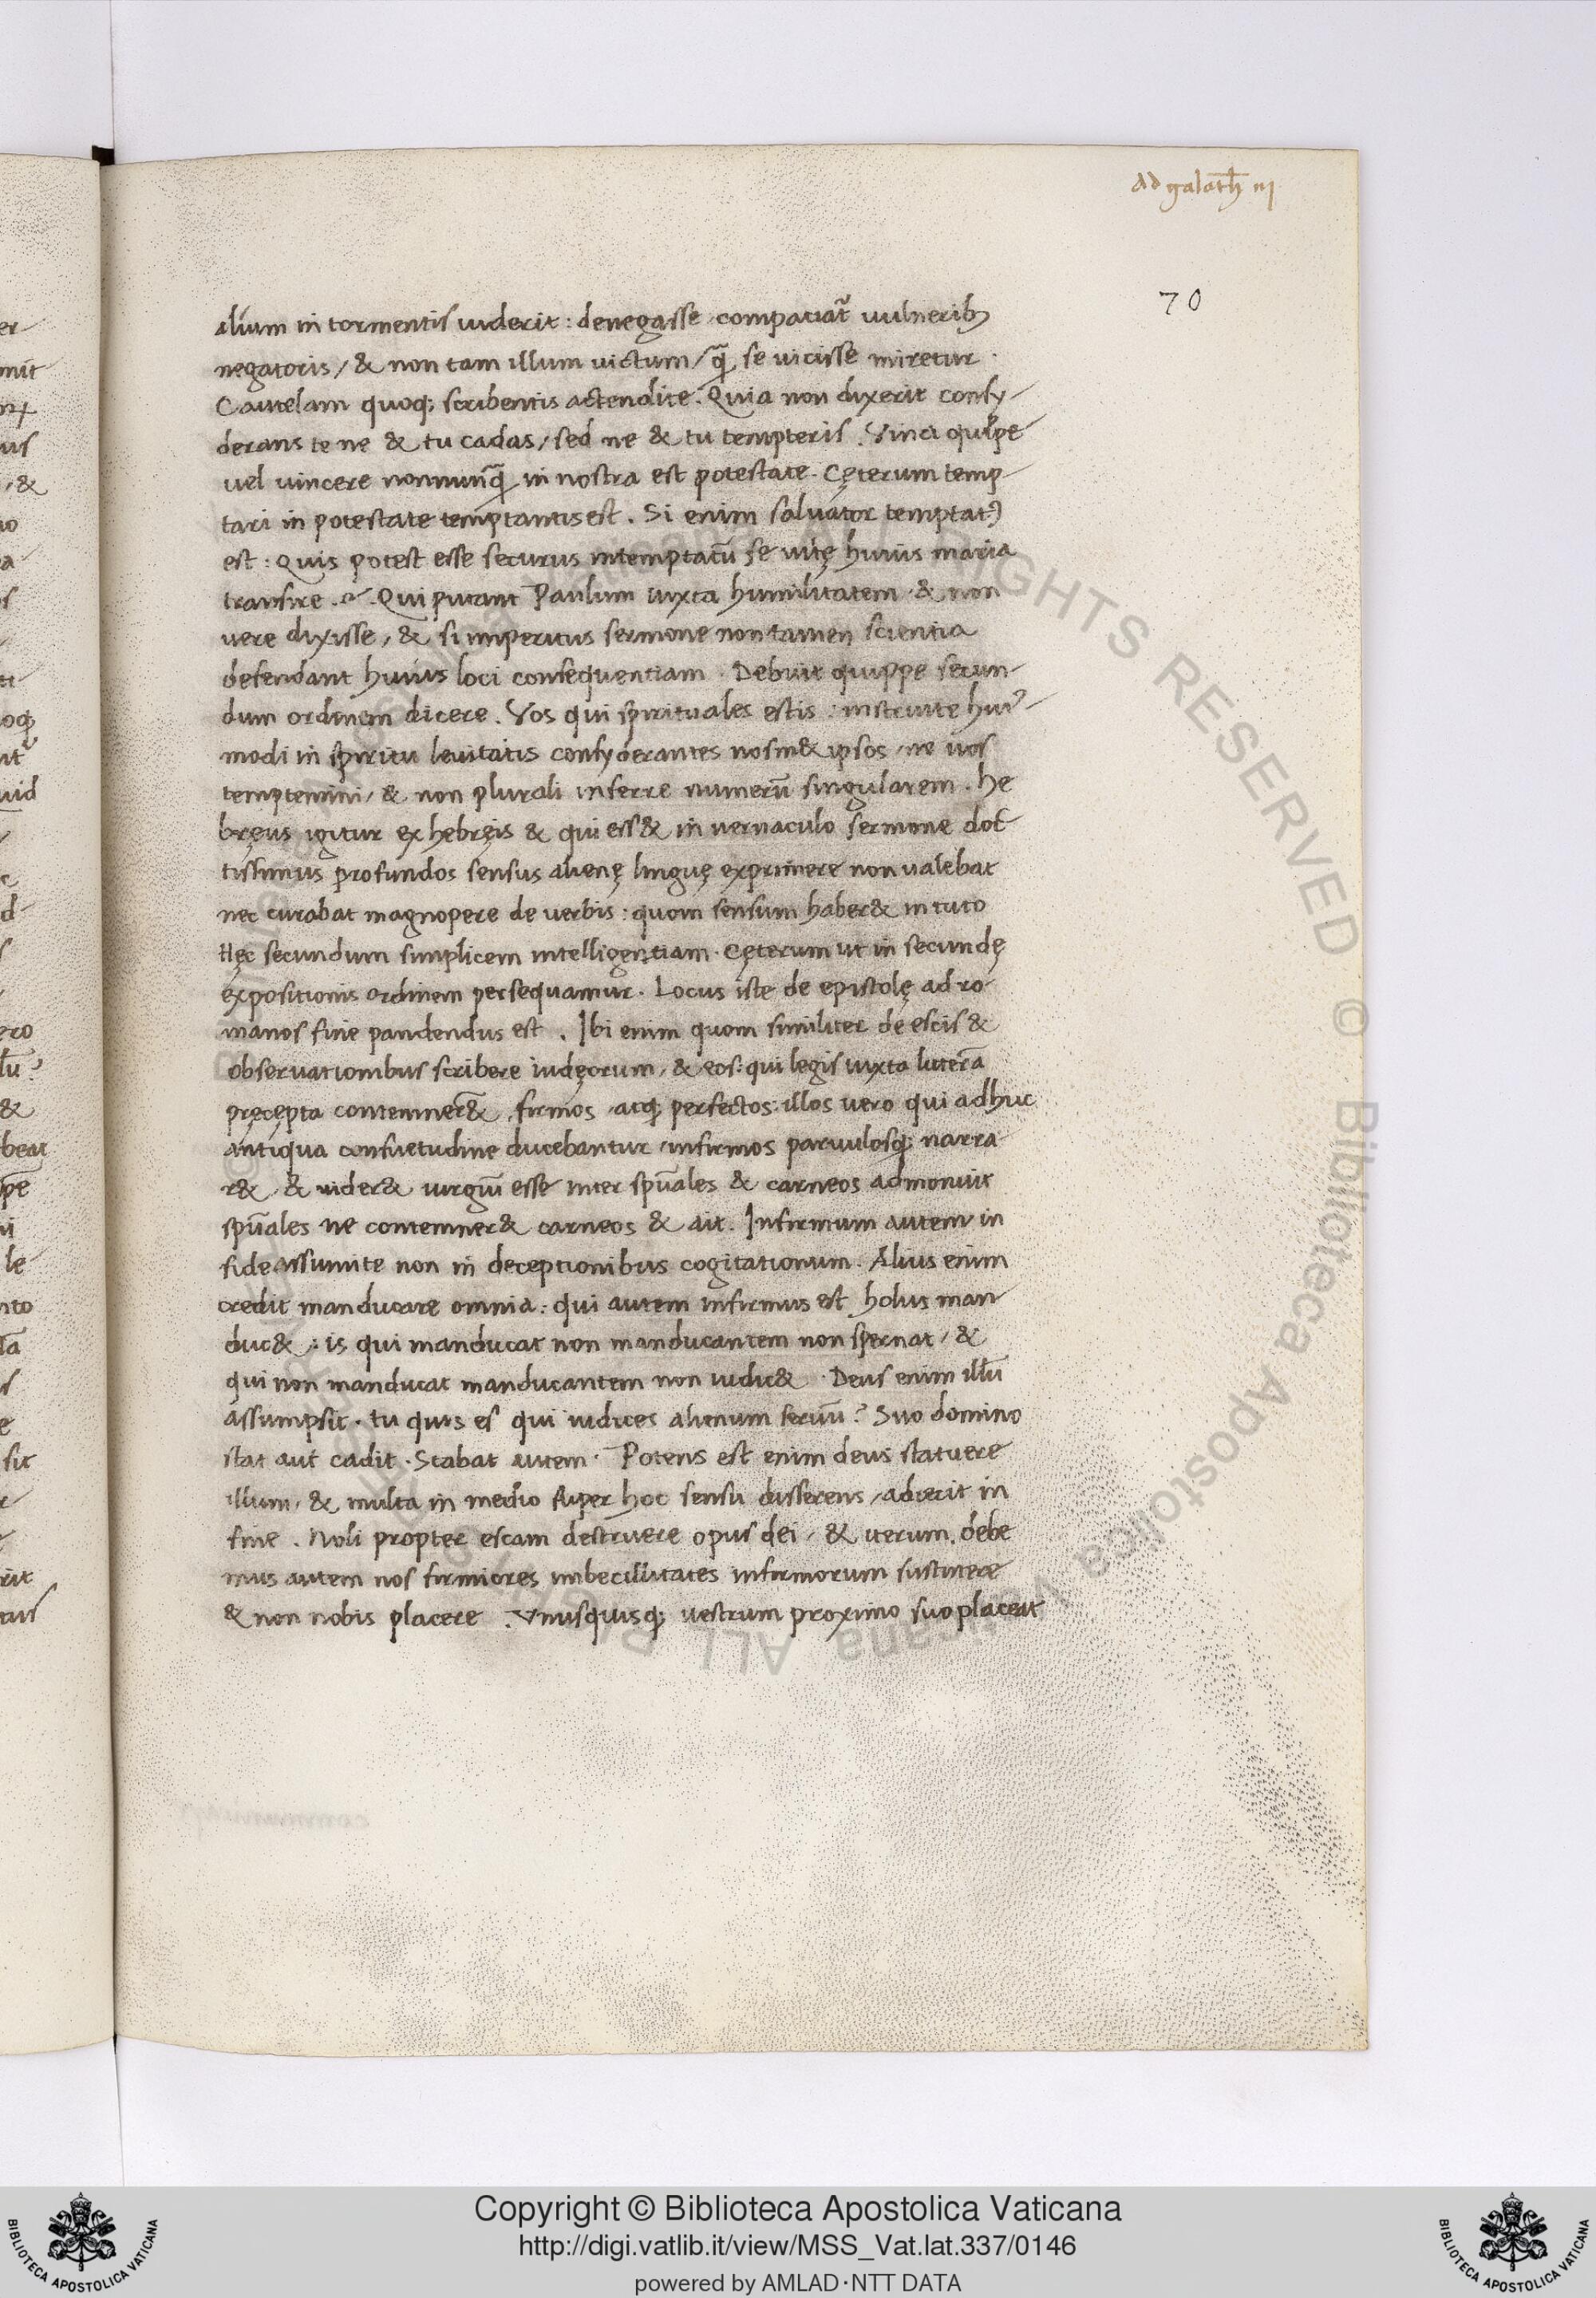 ad galath̄ iij
70
alium in tormentis uiderit : denegasse compaciat᷑ uulnerib;
negatoris / & non tam illum uictum / q̄ se uicisse miretur .
Cautelam quoq; scribentis actendite . Quia non dixerit consy-
derans te ne & tu cadas / sed ne & tu tempteris . Vinci quippe
uel uincere nonnunq̄ in nostra est potestate . Cęterum temp
tari in potestate temptantis est . Si enim saluator temptatꝰ
est : Quis potest esse securus intemptatū se uitę huius maria
transire . Qui putant Paulum iuxta humilitatem & non
uere dixisse / & si imperitus sermone non tamen scientia
defendant huius loci consequentiam . Debuit quippe secun-
dum ordinem dicere . Vos qui spirituales estis : instruite huiꝰ-
modi in spiritu leuitatis consyderantes uosm& ipsos / ne uos
temptemini / & non plurali inferre numerū singularem . He
bręus igitur ex hebręis & qui ess& in uernaculo sermone doc
tissimus profundos sensus alienę linguę exprimere non ualebat
nec curabat magnopere de uerbis : quom sensum haber& in tuto
Hęc secundum simplicem intelligentiam . Cęterum ut in secundę
expositionis ordinem persequamur . Locus iste de epistolę ad ro
manos fine pandendus est . Ibi enim quom similiter de escis &
obseruationibus scribere iudęorum / & eos : qui legis iuxta litterā
pręcepta contemner& firmos atq; perfectos : illos uero qui adhuc
antiqua consuetudine ducebantur / infirmos paruulosq; narra
r& / & uider& iurgiū esse inter spūales & carneos admonuit
spūales ne contemner& carneos & ait . Infirmum autem in
fide assumite non in deceptionibus cogitationum . Alius enim
credit manducare omnia : qui autem infirmus est holus man
duc& : is qui manducat non manducantem non spernat / &
qui non manducat manducantem non iudic& . Deus enim illū
assumpsit . tu quis es qui iudices alienum seruū ? Suo domino
stat aut cadit . Stabat autem . Potens est enim deus statuere
illum / & multa in medio super hoc sensu disserens / adiecit in
fine . Noli propter escam destruere opus dei / & iterum . debe
mus autem nos firmiores imbecillitates infirmorum sustinere
& non nobis placere . Vnusquisq; uestrum proximo suo placeat
Copyright © Biblioteca Apostolica Vaticana
http://digi.vatlib.it/view/MSS_Vat.lat.337/0146
powered by AMLAD·NTT DATA